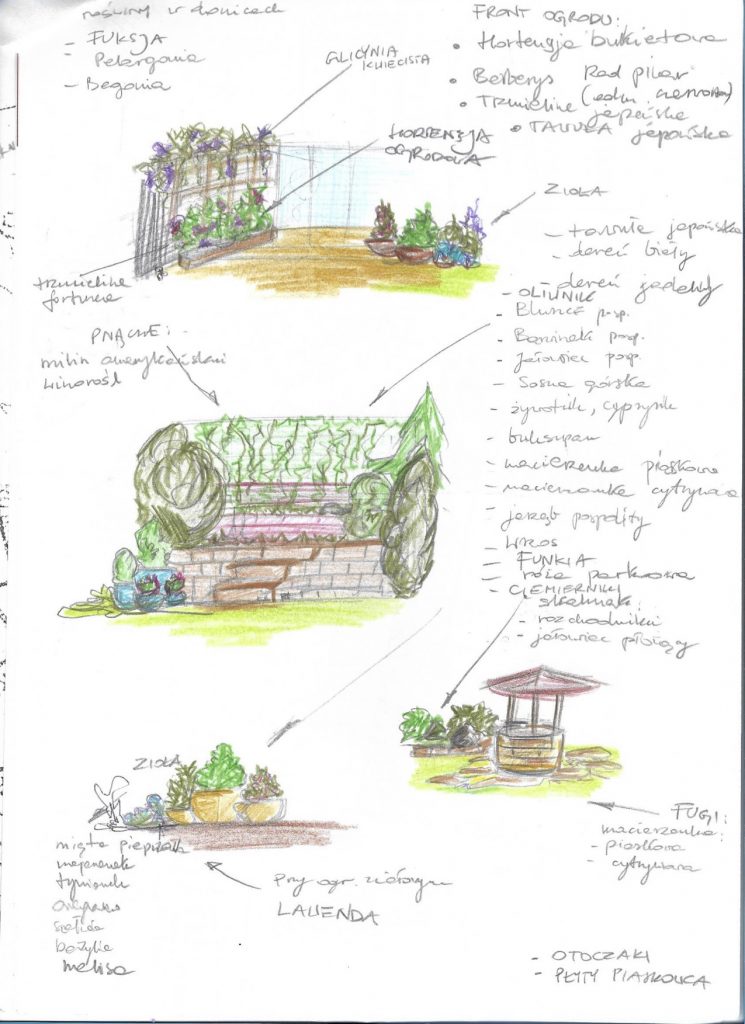 rośliny w donicach
- FUKSJA
- Pelargonia
- Begonia
GLICYNIA
KWIECISTA
HORTENSJA
OGRODOWA
FRONT OGRODU:
• Hortensja bukietowa
• Berberys Red pilar
• Trzmielina japońska
• TAWUŁA japońska
ZIOŁA
- tawuła japońska
- dereń biały
- dereń jadalny
trzmielina
fortunea
PNĄCZE:
milin amerykański
winorośl
- OLIWNIK
- Bluszcz posp.
- Barwinek posp.
- Jałowiec posp.
- Sosna górska
- żywotnik, cyprysik
- bukszpan
- macierzanka piaskowa
- macierzanka cytrynowa
- jarząb pospolity
- WRZOS
- FUNKIA
- róża parkowa
- CIEMIERNIKI
skalniak:
- rozchodniki
- jałowiec płożący
ZIOŁA
mięta pieprzowa
majeranek
tymianek
oregano
szałwia
bazylia
melisa
Przy ogr. ziołowym
LAWENDA
FUGI:
macierzanka:
- piaskowa
- cytrynowa
- OTOCZAKI
- PŁYTY PIASKOWCA